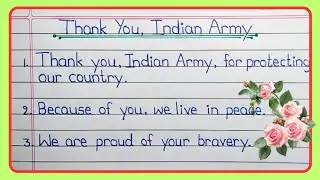 Thank You, Indian Army
1. Thank you, Indian Army, for protecting
our country.
2. Because of you, we live in peace.
3. We are proud of your bravery.